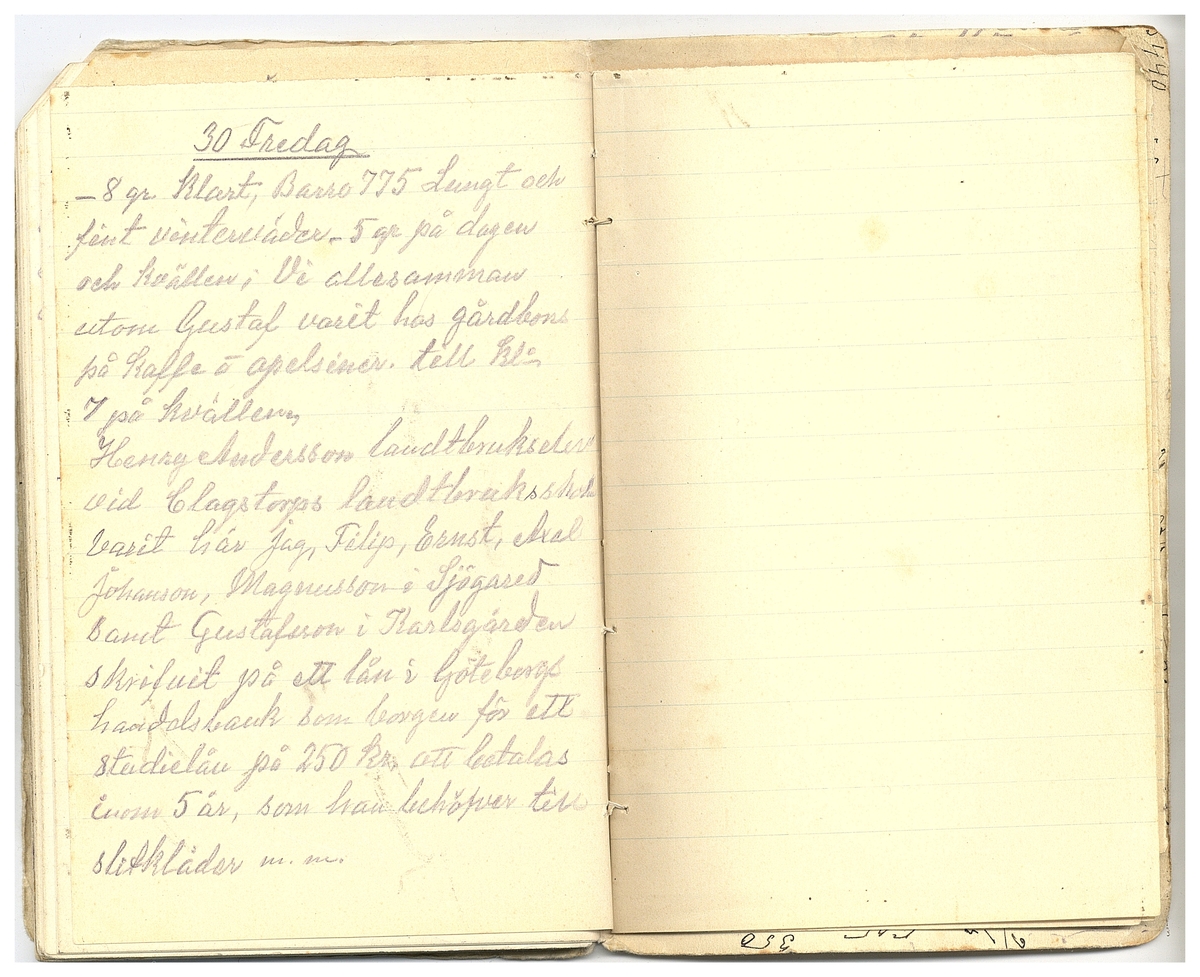 30 Fredag
– 8 gr Klart, Barro 775 Lungt och
fint vinterväder – 5 gr på dagen
och kvällen; Vi allesamman
utom Gustaf varit hos gårdbons
på kaffe å apelsiner. till kl.
7 på kvällen,
Henry Andersson landtbrukselev
vid Clagstorps landtbruksskola
varit här jag, Filip, Ernst, Axel
Johanson, Magnusson i Sjögared
samt Gustafsson i Karlsgården
skrifvit på ett lån i Göteborgs
handelsbank som borgen för ett
studielån på 250 kr, att betalas
inom 5 år, som han behöfver till
slitkläder m. m.
440
350